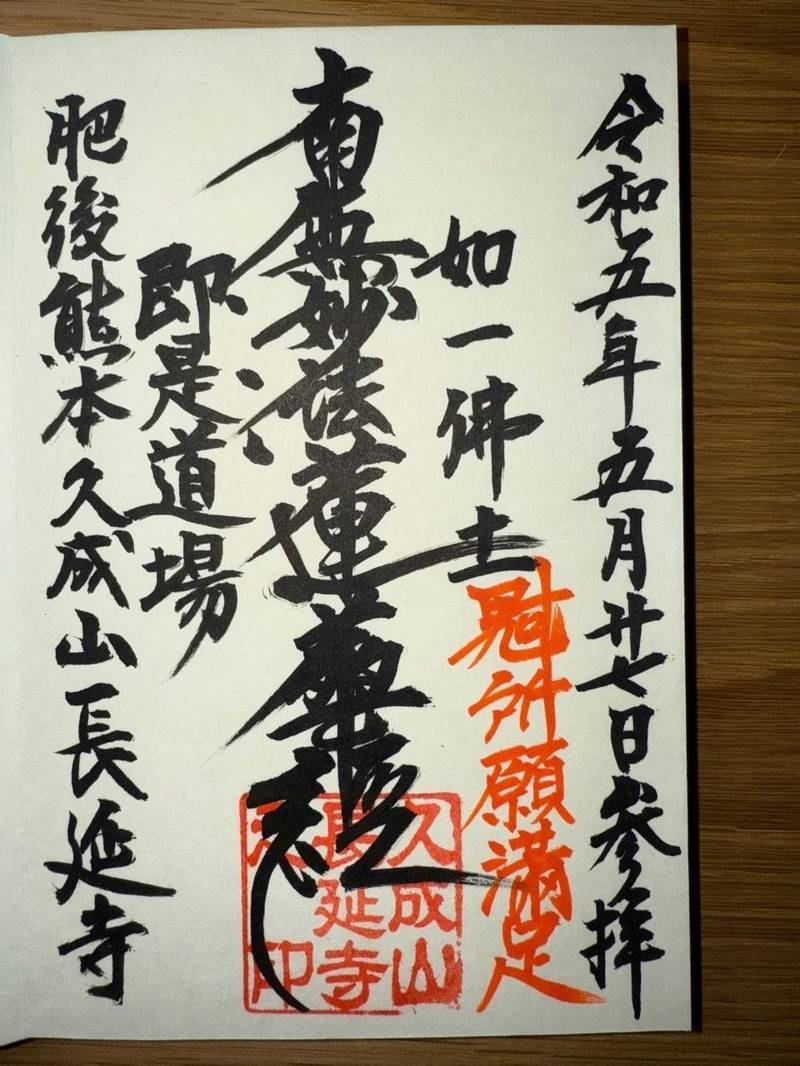 令和五年五月廿七日参拝
如一佛土
所願満足
南無妙法蓮華經
即是道場
肥後熊本久成山長延寺
久成山
長延寺
印